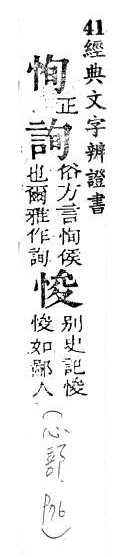 41經典文字辨證書
恂正詢俗方言恂侯
也爾雅作詢悛別史記悛
悛如鄙人(心部 p76)